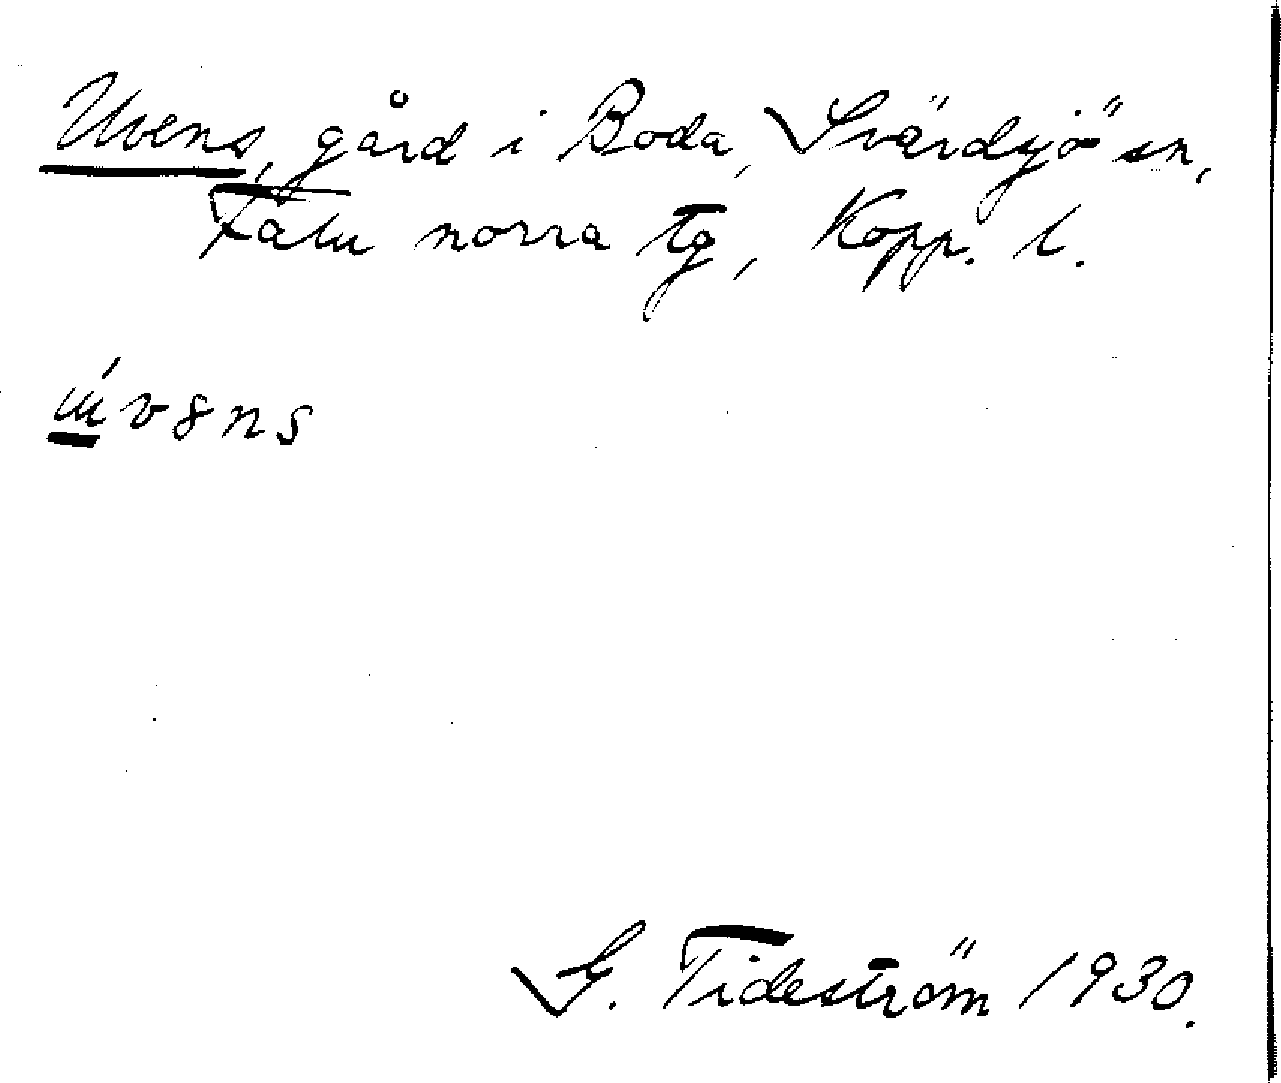 Uvens, gård i Boda, Svärdsjö sn,
Falu norra tg, Kopp. l.
úvens
G. Tideström 1930.